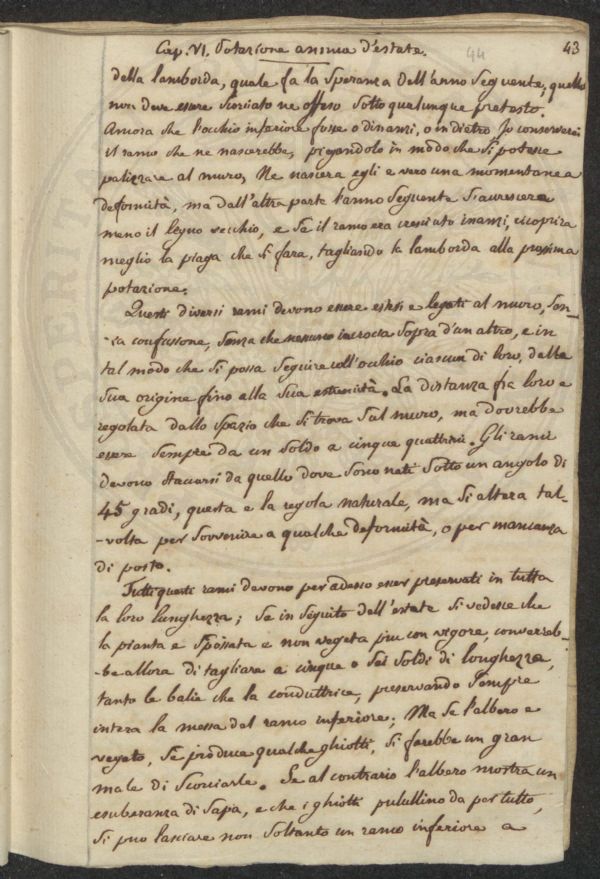 Cap. VI. Potazione anima d'estate. 44 43
della lamborda, quale fa la Speranza dell'anno Seguente, quello
non deve essere scorciato ne offeso Sotto qualunque pretesto.
Ancora che l'occhio inferiore fosse o dinanzi, o in dietro, Io conserverei
il ramo che ne nascerebbe, piegandolo in modo che Si potesse
palizzare al muro, Ne nascera egli e vero una momentanea
deformità, ma dall'altra parte l'anno Seguente Si avrescera
meno il legno vecchio, e Se il ramo era cresciuto inanzi, ricoprira
meglio la piaga che Si fara, tagliando la lamborda alla prossima
potazione.
Questi diversi rami devono essere estesi e legati al muro, Sen-
-za confusione, Senza che nessuno incrocia Sopra d'un altro, e in
tal modo che Si possa Seguire coll'occhio ciascun di loro, dalla
Sua origine fino alla Sua estremità. La distanza fra loro e
regolata dallo Spazio che Si trova Sul muro, ma dovrebbe
essere Sempre da un Soldo a cinque quattrini. Gli rami
devono staccarsi da quello dove Sono nati Sotto un angolo di
45 gradi, questa e la regola naturale, ma Si altera tal-
-volta per Sovvenire a qualche deformità, o per mancanza
di posto.
Tutti questi rami devono per adesso esser preservati in tutta
la loro lunghezza; Se in Seguito dell'estate Si vedesse che
la pianta e Spossata e non vegeta piu con vigore, converreb-
-be allora di tagliare a cinque o Sei Soldi di longhezza,
tanto le balie che la conduttrice, preservando Sempre
intera la messa del ramo inferiore; Ma Se l'albero e
vegeto, Se produce qualche ghiotti, Si farebbe un gran
male di Scorciarle. Se al contrario l'albero mostra un
esuberanza di Sapa, e che i ghiotti pulullino da per tutto,
Si puo lasciare non Soltanto un ramo inferiore a